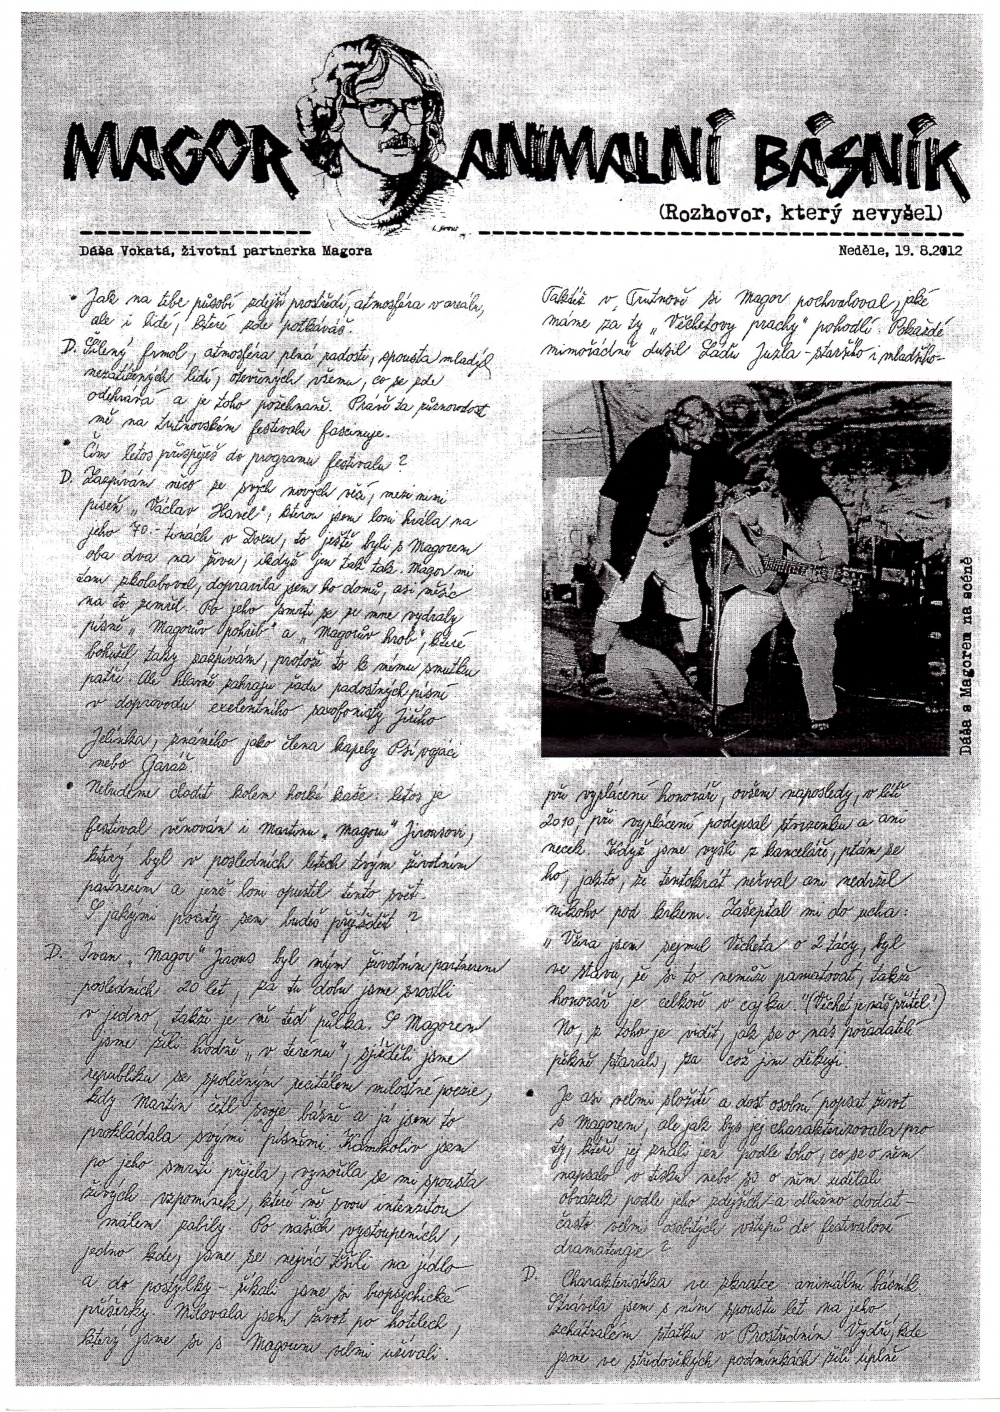 MAGOR ANIMALNÍ BÁSNÍK
(Rozhovor, který nevyšel)
Dáša Vokatá, životní partnerka Magora
Neděle, 19. 8.2012
• Jak na tebe působí zdejší prostředí, atmosféra v areálu,
ale i lidé, které zde potkáváš.
D. Šílený frmol, atmosféra plná radosti, spousta mladých
nezatížených lidí, otevřených všemu, co se zde
odehrává a je toho požehnaně. Právě ta různorodost
mě na trutnovském festivalu fascinuje.
• Čím letos přispěješ do programu festivalu?
D. Zazpívám něco ze svých nových věcí, mezi nimi
píseň „Václav Havel", kterou jsem loni hrála na
jeho 70-tinách v Doxu, to ještě byli s Magorem
oba dva na živu, i když jen tak tak. Magor mi
tam zkolaboval, dopravila jsem ho domů, asi měsíc
na to zemřel. Po jeho smrti se ze mne vydraly
písně „Magorův pohřeb" a „Magorův hrob", které
bohužel taky zazpívám, protože to k mému smutku
patří. Ale hlavně zahraju řadu radostných písní
v doprovodu excelentního saxofonisty Jiřího
Jelínka, známého jako člena kapely Psí vojáci
nebo Garáž
• Nebudeme chodit kolem horké kaše: letos je
festival věnován i Martinu „Magoru" Jirousovi,
který byl v posledních letech tvým životním
partnerem a jenž loni opustil tento svět.
S jakými pocity sem budeš přijíždět?
D. Ivan „Magor" Jirous byl mým životním partnerem
posledních 20 let, za tu dobu jsme srostli
v jedno, takže je mě teď půlka. S Magorem
jsme žili hodně „v terénu", sjížděli jsme
republiku se společným recitálem milostné poezie,
kdy Martin četl svoje básně a já jsem to
prokládala svými písněmi. Kamkoliv jsem
po jeho smrti přijela, vynořila se mi spousta
živých vzpomínek, které mě svou intenzitou
málem zabily. Po našich vystoupeních,
jedno kde, jsme se nejvíc těšili na jídlo
a do postýlky – říkali jsme si biopsychické
příšerky. Milovala jsem život po hotelech,
který jsme si s Magorem velmi užívali.
Taktéž v Trutnově si Magor pochvaloval, jaké
máme za ty „Věchetovy prachy" pohodlí. Pokaždé
mimořádně dusil Láďu Juzla – staršího i mladšího –
Dáša s Magorem na scéně
při vyplácení honorářů, ovšem naposledy, v létě
2010, při vyplácení podepsal stvrzenku a ani
necek. Když jsme vyšli z kanceláře, ptám se
ho, jakto, že tentokrát neřval ani nedržel
nikoho pod krkem. Zašeptal mi do ucha:
„Včera jsem sejmul Věcheta o 2 tácy, byl
ve stavu, že si to nemůže pamatovat, takže
honorář je celkově v cajku." (Věchet je náš přítel!)
No, z toho je vidět, jak se o nás pořadatelé
pěkně starali, za což jim děkuji.
• Je asi velmi složité a dost osobní popsat život
s Magorem, ale jak bys jej charakterizovala pro
ty, kteří jej znali jen podle toho, co se o něm
napsalo v tisku nebo si o něm udělali
obrázek podle jeho zdejších – a dlužno dodat
často velmi osobitých vstupů do festivalové
dramaturgie?
D. Charakteristika ve zkratce – animální básník
Strávila jsem s ním spoustu let na jeho
zchátralém statku v Prostředním Vydří, kde
jsme ve středověkých podmínkách žili úplně